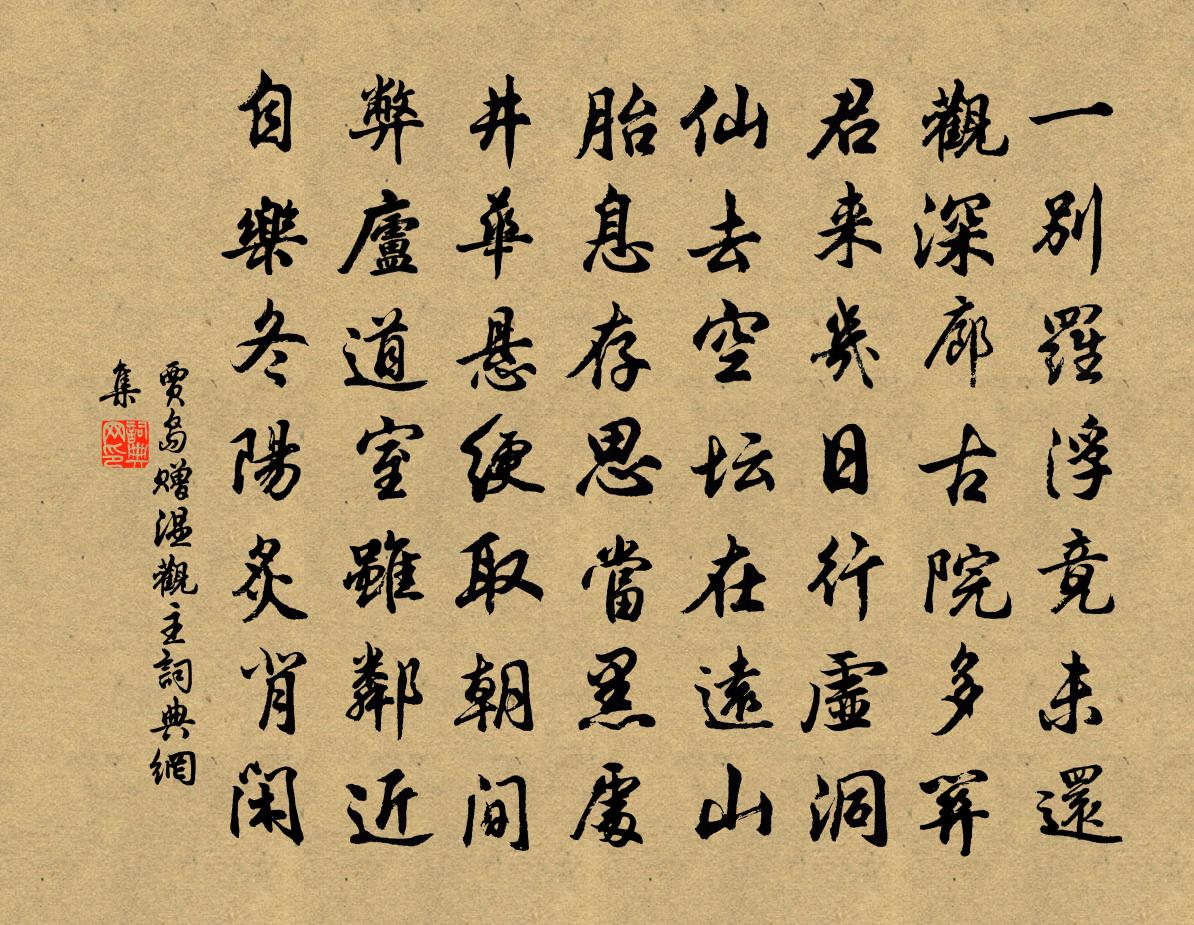 一別羅浮竟未還
觀深廊古院多関
君来幾日行虛洞
仙去空坛在遠山
胎息存思當黑處
井華悬绠取朝间
弊廬道室雖鄰近
自樂冬陽炙背闲
賈島赠温觀主詞典網
集
詞典网印